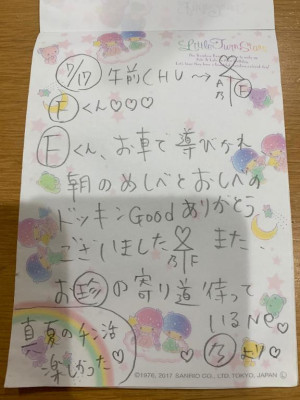 Little Twin Stars
7/17 午前CHU〜
乃 F
Fくん♡♡♡
Fくん、お車で導びかれ
朝のめしべとおしべの
ドッキンGoodありがとう
ございました 乃 F また、
お珍の寄り道待って
いるNe♡
乃より♡
真夏のチン活
楽しかった♡
©1976, 2017 SANRIO CO., LTD. TOKYO, JAPAN Ⓛ